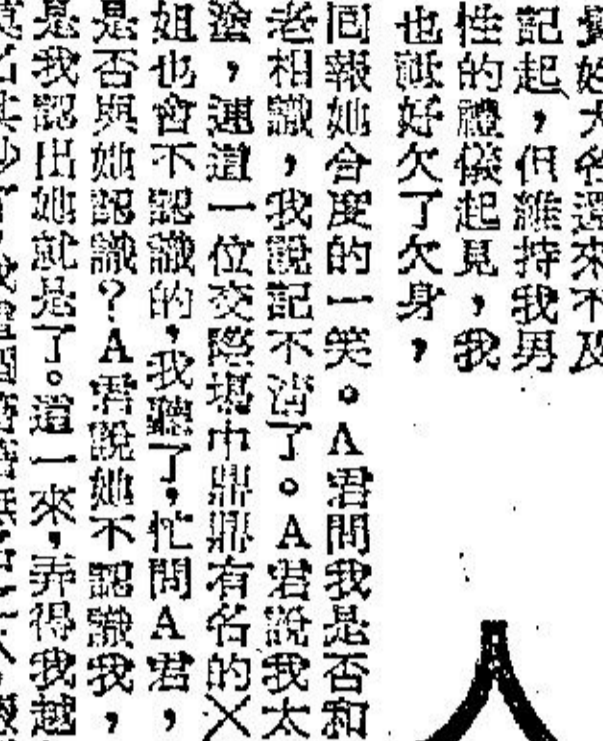 好大名還來不及
記起，但維持我男
性的禮儀起見，我
也祗好欠了欠身，
回報她合度的一笑。A君問我是否和
老相識，我說記不清了。A君說我太
塗，連這一位交際場中鼎鼎有名的×
姐也會不認識的，我聽了，忙問A君，
是否與她認識？A君說她不認識我，
是我認出她就是了。這一來，弄得我越